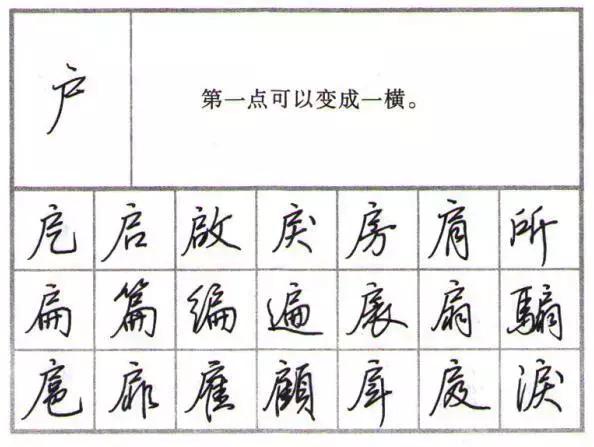 户 第一点可以变成一横。
戹 启 啟 戾 房 肩 所
扁 篇 编 遍 扆 扇
扈 扉 雇 顧 戽 淚